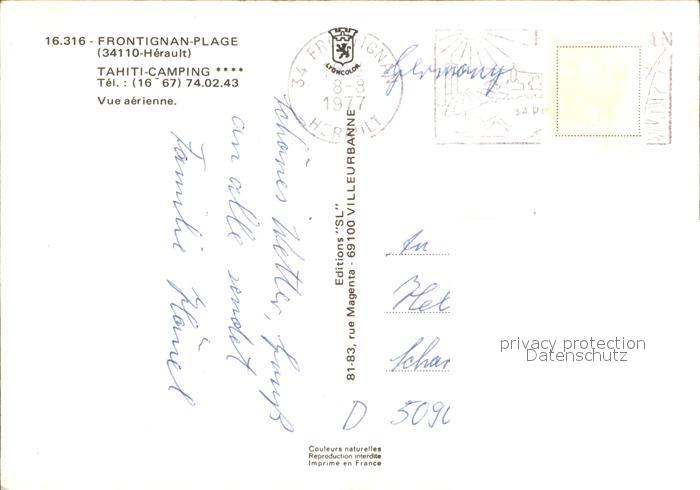 16.316 - FRONTIGNAN-PLAGE
(34110-Hérault)
TAHITI-CAMPING ****
Tél. : (16 - 67) 74.02.43
Vue aérienne.
LYONCOLOR
34 FRONTIGNAN
8-8
1977
HERAULT
Germany
schönes Wetter, Gruß
an alle sendet
Familie
Editions "SL"
81-83, rue Magenta - 69100 VILLEURBANNE
An
Hel
Schar
D 509
privacy protection
Datenschutz
Couleurs naturelles
Reproduction interdite
Imprimé en France